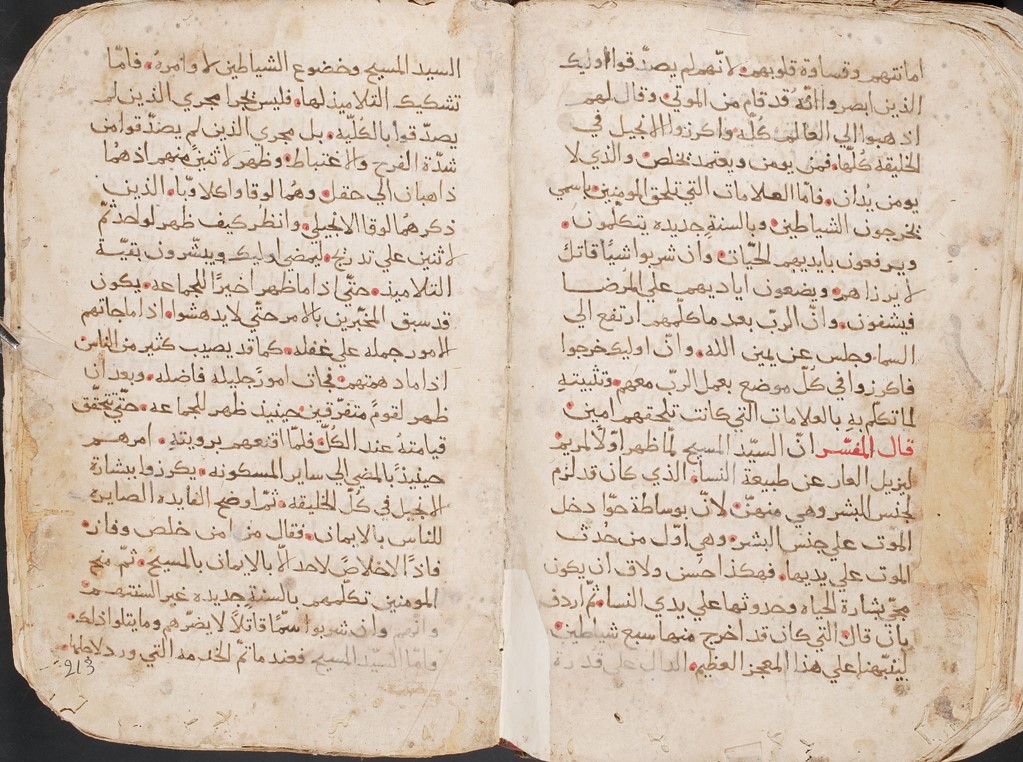 امانتهم وقساوة قلوبهم ولانّهم لم يصدّقوا اوليك
الذين ابصروا انّهُ قد قام من الموتي وقال لهم
اذهبوا الي العالم كُلّه واكرزوا الانجيل في
الخليقه كُلّها فمن يومن ويعتمد يخلص والذي لا
يومن يُدان فامّا العلامات التي تلحق المومنين باسمي
يخرجون الشياطين وبالسنةٍ جديده يتكلّمون
ويرفعون بايديهم الحيّات وان شربوا شيًا قاتلاً
لا يرزاهم ويضعون اياديهم علي المُرضا
فيشفون وانّ الربّ بعد ما كلّمهم ارتفع الي
السما وجلس عن يمين الله وانّ اوليك خرجوا
فاكرزوا في كلّ موضع بعمل الربّ معهم وتثبيتهِ
لما تكلّم بهِ بالعلامات التي كانت تلحقهم امين
قال المفسّر انّ السيّد المسيح لمّا ظهر اولًا لمريم
ليزيل العار عن طبيعة النسا الذي كان قد لزم
لجنس البشر وهي منهنّ لانّ بوساطة حوّا دخل
الموت علي جنس البشر وهي اوّل من حُدث
الموت علي يديها فهكذا حسن ولاق ان يكون
مجي بشارة الحياه وحدوثها علي يدي النسا ثمّ اردف
بان قال التي كان قد اخرج منها سبع شياطين
لينبّهنا علي هذا المعجز العظيم الدال علي قدرة
السيد المسيح وخضوع الشياطين لاوامرهُ فامّا
تشكيك التلاميذ لها فليس يجرا مجري الذين لم
يصدّقوا بالكلّيه بل مجري الذين لم يصدّقوا من
شدّة الفرح والاغتباط وظهر لاثنين منهم اذ هُما
ذاهبان الي حقل وهُما لوقا واكلاوبّا الذين
ذكرهُما لوقا الانجيلي وانظر كيف ظهر لواحد ثمّ
لاثنين علي تدريج ليمضي اوليك ويبشّرون بقيّة
التلاميذ حتّي اذا ما ظهر اخيرًا للجماعه يكون
قد سبق المخبّرين بالامر حتّي لا يدهشوا اذا ما جاتهم
الامور جمله علي غفله كما قد يصيب كثير من الناس
اذا ما دهمتهم فجاة امورٌ جليله فاضله وبعد ان
ظهر لقومٍ متفرّقين حينيذ ظهر للجماعه حتّي تحقّق
قيامتهُ عند الكلّ فلمّا اقنعهم برويتهِ امرهم
حينيذ بالمضي الي ساير المسكونه يكرزوا ببشارة
الانجيل في كُلّ الخليقه ثمّ اوضح الفايده الصايره
للناس بالايمان فقال من امن خلص وفاز
فاذًا لا خلاصٌ لاحد الّا بالايمان بالمسيح ثمّ منح
المومنين تكلّمهم بالسنةٍ جديده غير السنتهم
وانّهم وان شربوا سمًّا قاتلاً لا يضرّهم وما يتلوا ذلك
وامّا السيّد المسيح فعند ما تمّ الخدمه التي ورد لاجلها
213